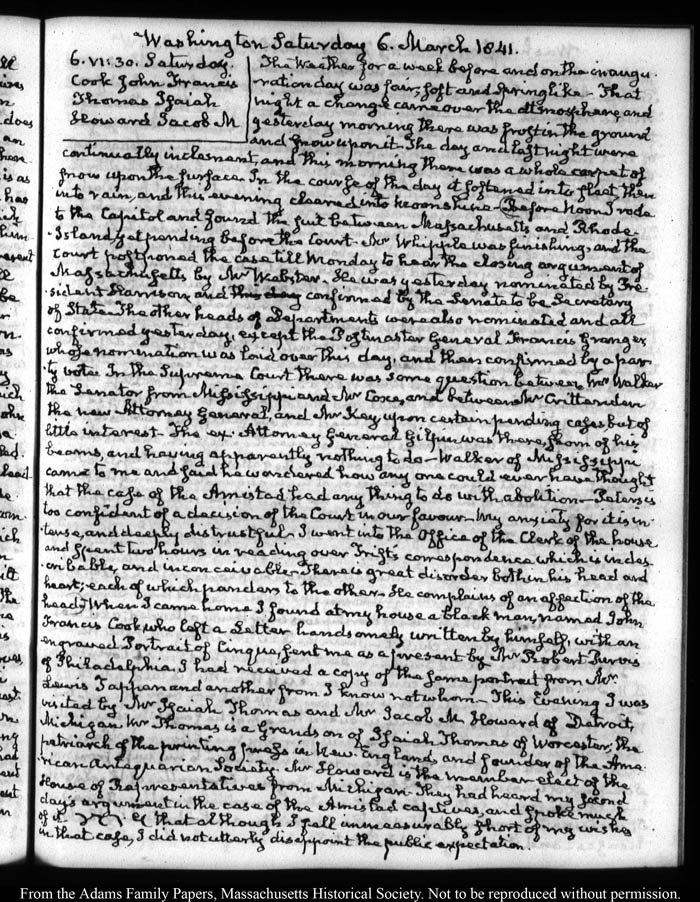 Washington Saturday 6. March 1841.
6. VI:30. Saturday.
Cook John Francis
Thomas Isaiah
Howard Jacob M
The Weather for a week before and on the inaugu-
ration day was fair, soft and Springlike - That
night a change came over the atmosphere, and
yesterday morning there was frost in the ground
and snow upon it. The day and last night were
continually inclement, and this morning there was a whole carpet of
snow upon the surface. In the course of the day it softened into sleet then
into rain, and this evening cleared into moonshine - Before Noon I rode
to the Capitol and found the suit between Massachusetts and Rhode-
Island yet pending before the Court. Mr Whipple was finishing, and the
Court postponed the case till Monday to hear the closing argument of
Massachusetts by Mr Webster. He was yesterday nominated by Pre-
sident Harrison and this day confirmed by the Senate to be Secretary
of State. The other heads of Departments were also nominated and all
confirmed yesterday, except the Postmaster General Francis Granger
whose nomination was laid over this day, and then confirmed by a par-
ty vote. In the Supreme Court there was some question between Mr Walker
the Senator from Mississippi and Mr Coxe, and between Mr Crittenden
the new Attorney General, and Mr Key, upon certain pending cases but of
little interest - The ex-Attorney General Gilpin was there, shorn of his
beams, and having apparently nothing to do - Walker of Mississippi
came to me and said he wondered how any one could ever have thought
that the case of the Amistad had any thing to do with abolition - Peters is
too confident of a decision of the Court in our favour - My anxiety for it is in-
tense, and deeply distrustful. I went into the Office of the Clerk of the house
and spent two hours in reading over Trist's correspondence which is indes-
cribable, and inconceivable - There is great disorder both in his head and
heart; each of which panders to the other - He complains of an affection of the
head. When I came home I found at my house a black man, named John
Francis Cook, who left a Letter handsomely written by himself, with an
engraved Portrait of Cinque, sent me as a present by Mr Robert Purvis
of Philadelphia. I had received a copy of the same portrait from Mr
Lewis Tappan and another from I know not whom - This Evening I was
visited by Mr Isaiah Thomas and Mr Jacob M. Howard of Detroit,
Michigan. Mr Thomas is a Grandson of Isaiah Thomas of Worcester, the
patriarch of the printing press in New-England, and founder of the Ame-
rican Antiquarian Society. Mr Howard is the member elect of the
House of Representatives from Michigan. They had heard my second
day's argument in the case of the Amistad captives, and spoke much
of it that although I fell immeasurably short of my wishes
in that case, I did not utterly disappoint the public expectation.
From the Adams Family Papers, Massachusetts Historical Society. Not to be reproduced without permission.